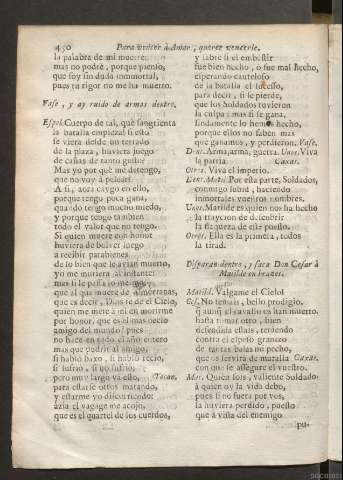 450 Para vencer à Amor, querer vencerle.
la palabra de mi muerte:
mas no podrè, porque pienso,
que soy sin duda inmortal,
pues tu rigor no me ha muerto.
Vase, y ay ruido de armas dentro.
Espol. Cuerpo de tal, què sangrienta
la batalla empieza! si esta
se viera desde un terrado
de la plaza, huviera juego
de cañas de tanto gusto?
Mas yo por què me detengo,
que no voy à pelear?
A si, aora caygo en ello,
porque tengo poca gana,
quando tengo mucho miedo,
y porque tengo tambien
todo el valor que no tengo.
Si quien muere con honor
huviera de bolver luego
à recibir parabienes
de lo bien que le avian muerto,
yo me muriera al instante:
mas si le passa lo mesmo
que al que muere de almorranas,
que es decir, Dios te dè el Cielo,
quien me mete à mi en morirme
por honor, que es el mas necio
amigo del mundo? pues
no hace en todo el año entero
mas que podrir al amigo:
si hablò baxo, si hablò recio,
si sufriò, si no sufriò:
pero muy largo và esto, Tocan.
para estarse otros matando,
y estarme yo discurriendo:
àzia el vagage me acojo,
que es el quartel de los cuerdos,
y sabrè si el embestir
fue bien hecho, ò fue mal hecho,
esperando cauteloso
de la batalla el sucesso,
para decir, si se pierde,
que los Soldados tuvieron
la culpa; mas si se gana,
lindamente lo hemos hecho,
porque ellos no saben mas
que ganamos, y perdieron. Vase.
Dent. Arma, arma, guerra. Unos. Viva
la patria. Caxas.
Otros. Viva el imperio.
Dent. Matil. Por esta parte, Soldados,
conmigo subid, haciendo
inmortales vuestros nombres.
Unos. Matilde es quien nos ha hecho
la traycion de descubrir
la flaqueza de este puesto.
Otros. Ella es la primera, todos
la tirad.
Disparan dentro, y saca Don Cesar à
Matilde en brazos.
Matild. Valgame el Cielo!
Ces. No temais, bello prodigio,
q̃ aunq̃ el cavallo os han muerto,
hasta tomar otro, bien
defendida estais, teniendo
contra el espeso granizo
de tantas balas no pecho,
que os servirà de muralla Caxas.
con que se assegure el vuestro.
Mat. Quièn sois, valiente Soldado,
à quien oy la vida debo,
pues si no fuera por vos,
la huviera perdido, puesto
que à vista del enemigo
pu-